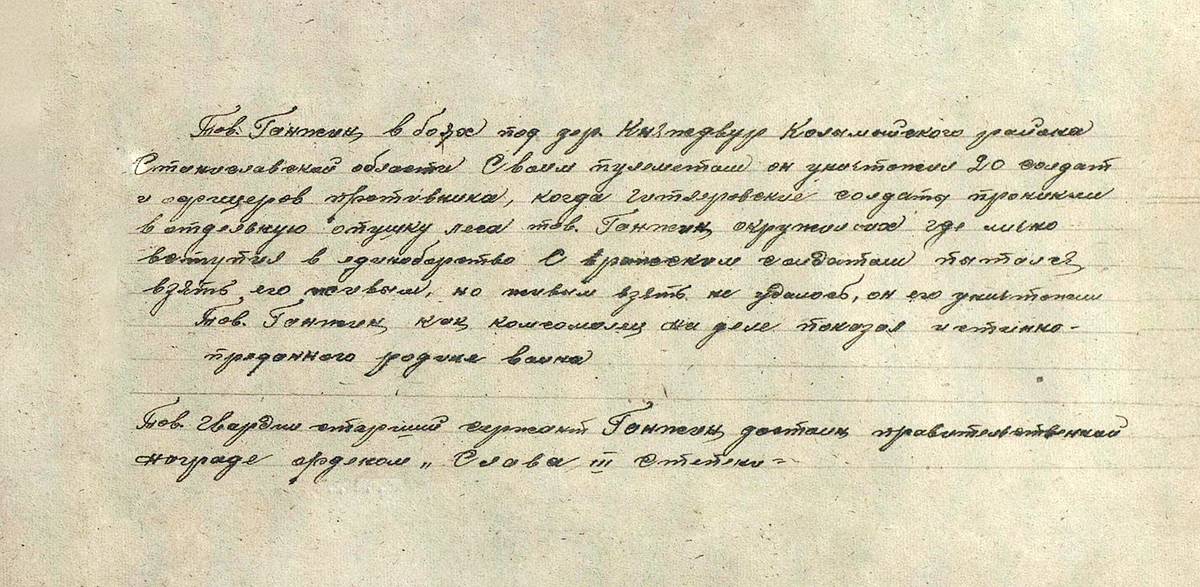 Тов. Ганжин в боях под дер. Княждвур Коломыйского района
Станиславской области Своим пулеметом он уничтожил 20 солдат
и офицеров противника, когда гитлеровские солдаты проникли
в отдельную опушку леса тов. Ганжин окружился где лично
вступил в единоборство С вражеским солдатом пытался
взять его живым, но живым взять не удалось, он его уничтожил
Тов. Ганжин как комсомолец на деле показал истинно-
преданного родине воина
Тов. Гвардии старший сержант Ганжин достоин правительственной
награде орденом „Слава III степени=